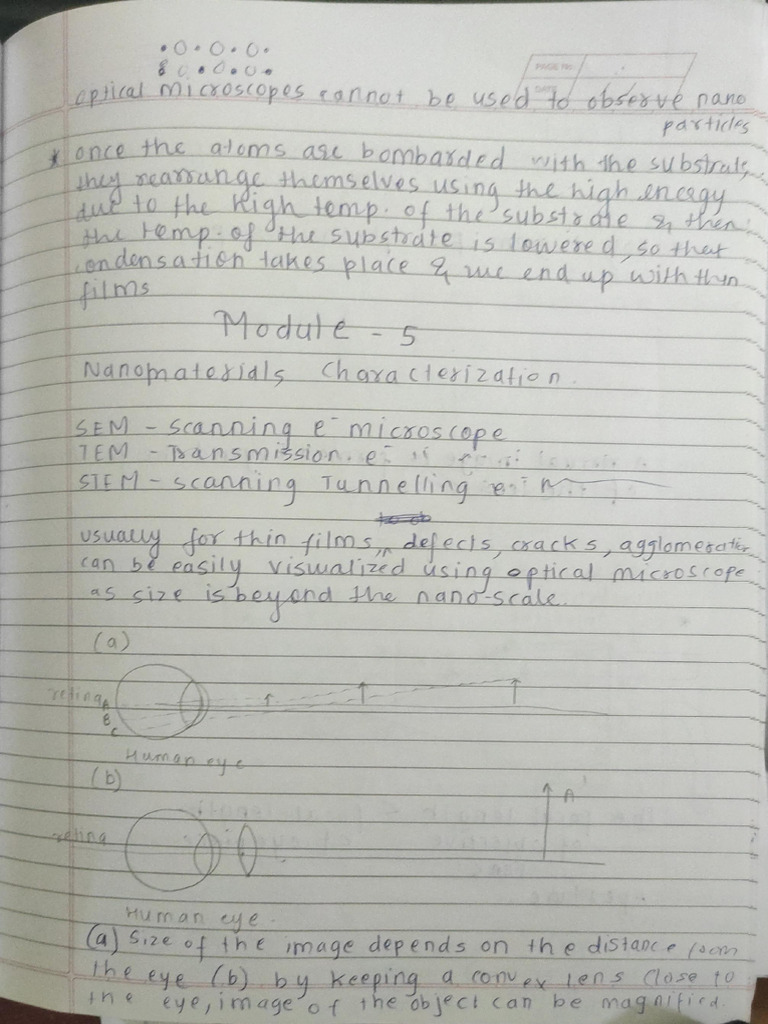 PAGE NO.
DATE
optical microscopes cannot be used to observe nano
particles
* once the atoms are bombarded with the substrate,
they rearrange themselves using the high energy
due to the high temp. of the substrate & then
the temp. of the substrate is lowered, so that
condensation takes place & we end up with thin
films
Module - 5
Nanomaterials Characterization.
SEM - scanning e⁻ microscope
TEM - Transmission e⁻ " "
STEM - scanning Tunnelling e⁻
usually for thin films, defects, cracks, agglomeration
can be easily visualized using optical microscope
as size is beyond the nano-scale.
(a)
retina
A
B
C
Human eye
(b)
A'
retina
Human eye.
(a) size of the image depends on the distance from
the eye (b) by keeping a convex lens close to
the eye, image of the object can be magnified.